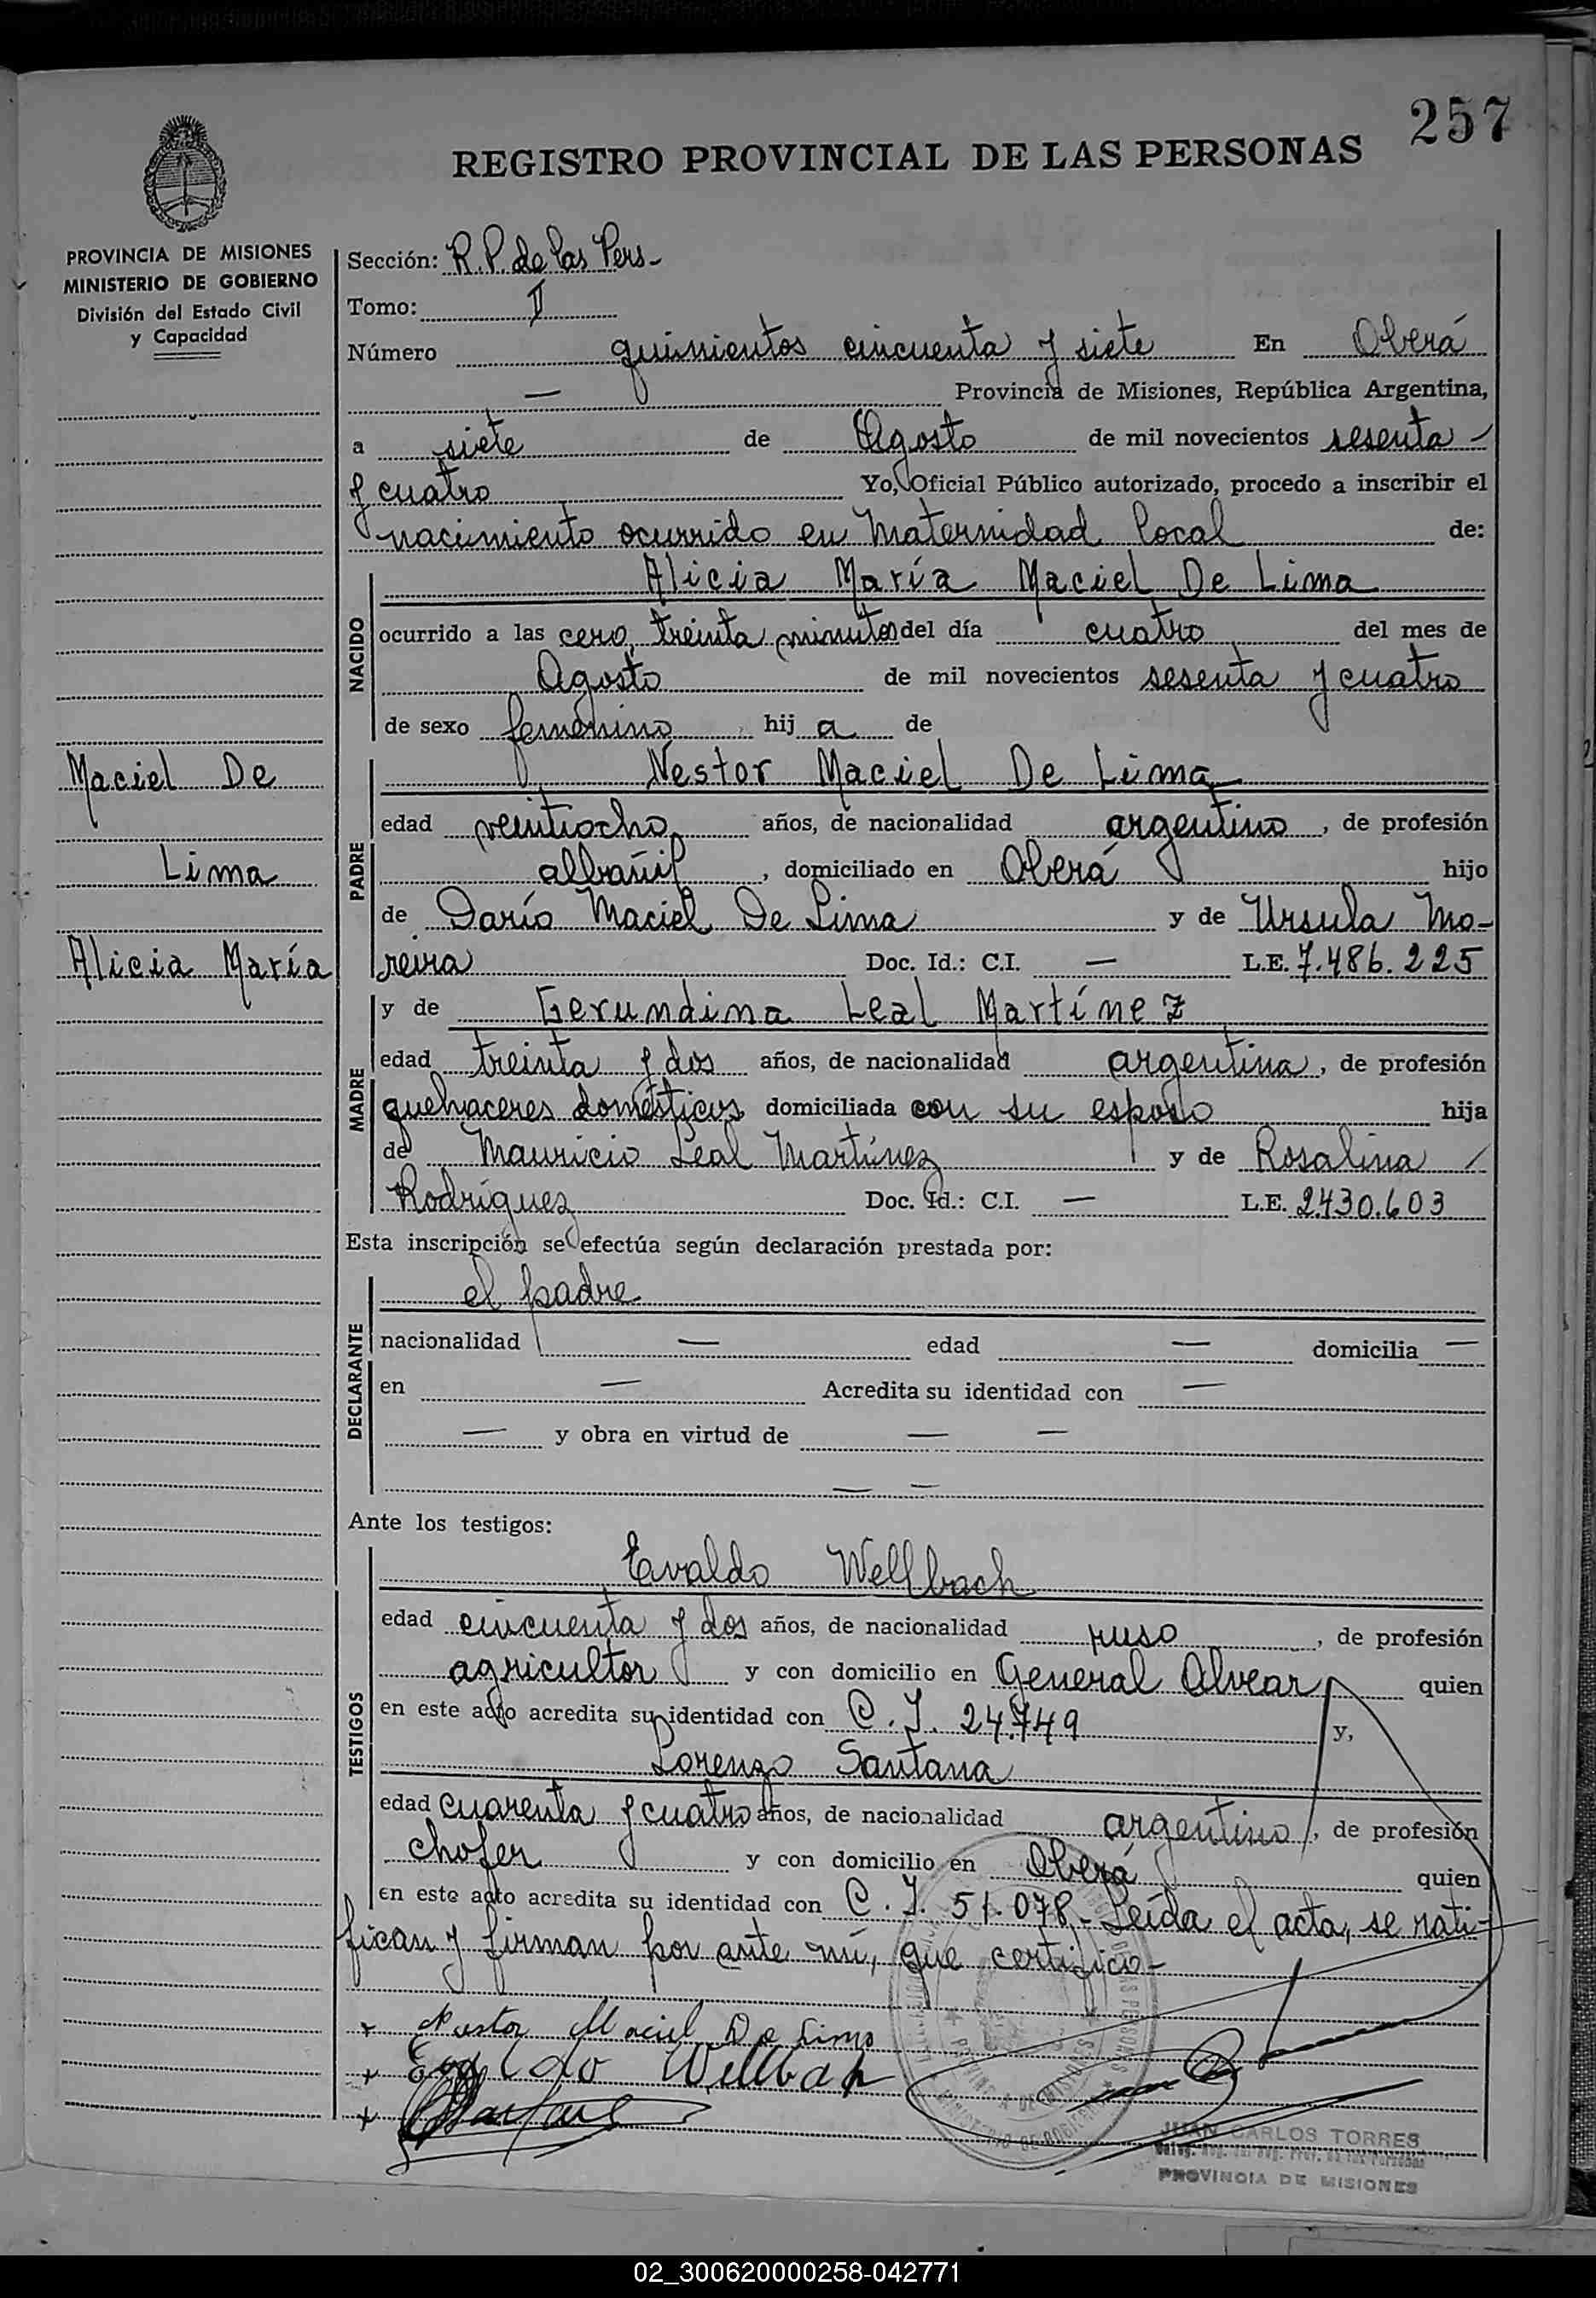 257
REGISTRO PROVINCIAL DE LAS PERSONAS
PROVINCIA DE MISIONES
MINISTERIO DE GOBIERNO
División del Estado Civil
y Capacidad
Maciel De
Lima
Alicia María
Sección: R. P. de las Pers-
Tomo: II
Número quinientos cincuenta y siete En Oberá
— Provincia de Misiones, República Argentina,
a siete de Agosto de mil novecientos sesenta
y cuatro Yo, Oficial Público autorizado, procedo a inscribir el
nacimiento ocurrido en Maternidad local de:
NACIDO
Alicia María Maciel De Lima
ocurrido a las cero, treinta minutos del día cuatro del mes de
Agosto de mil novecientos sesenta y cuatro
de sexo femenino hij a de
PADRE
Nestor Maciel De Lima
edad veintiocho años, de nacionalidad argentino, de profesión
albañil, domiciliado en Oberá hijo
de Darío Maciel De Lima y de Ursula Mo-
reira Doc. Id.: C.I. — L.E. 7.486.225
MADRE
y de Gerundina Leal Martínez
edad treinta y dos años, de nacionalidad argentina, de profesión
quehaceres domésticos domiciliada con su esposo hija
de Mauricio Leal Martínez y de Rosalina
Rodríguez Doc. Id.: C.I. — L.E. 2430.603
Esta inscripción se efectúa según declaración prestada por:
DECLARANTE
el padre
nacionalidad — edad — domicilia —
en — Acredita su identidad con —
— y obra en virtud de — —
— —
Ante los testigos:
TESTIGOS
Evaldo Wellbach
edad cincuenta y dos años, de nacionalidad ruso, de profesión
agricultor y con domicilio en General Alvear quien
en este acto acredita su identidad con C. I. 24.749 y,
Lorenzo Santana
edad cuarenta y cuatro años, de nacionalidad argentino, de profesión
chofer y con domicilio en Oberá quien
en este acto acredita su identidad con C. I. 51.078- Leída el acta, se rati-
fican y firman por ante mí, que certifico-
x Nestor Maciel De Lima
x Evaldo Wellbach
x
JUAN CARLOS TORRES
PROVINCIA DE MISIONES
02_300620000258-042771